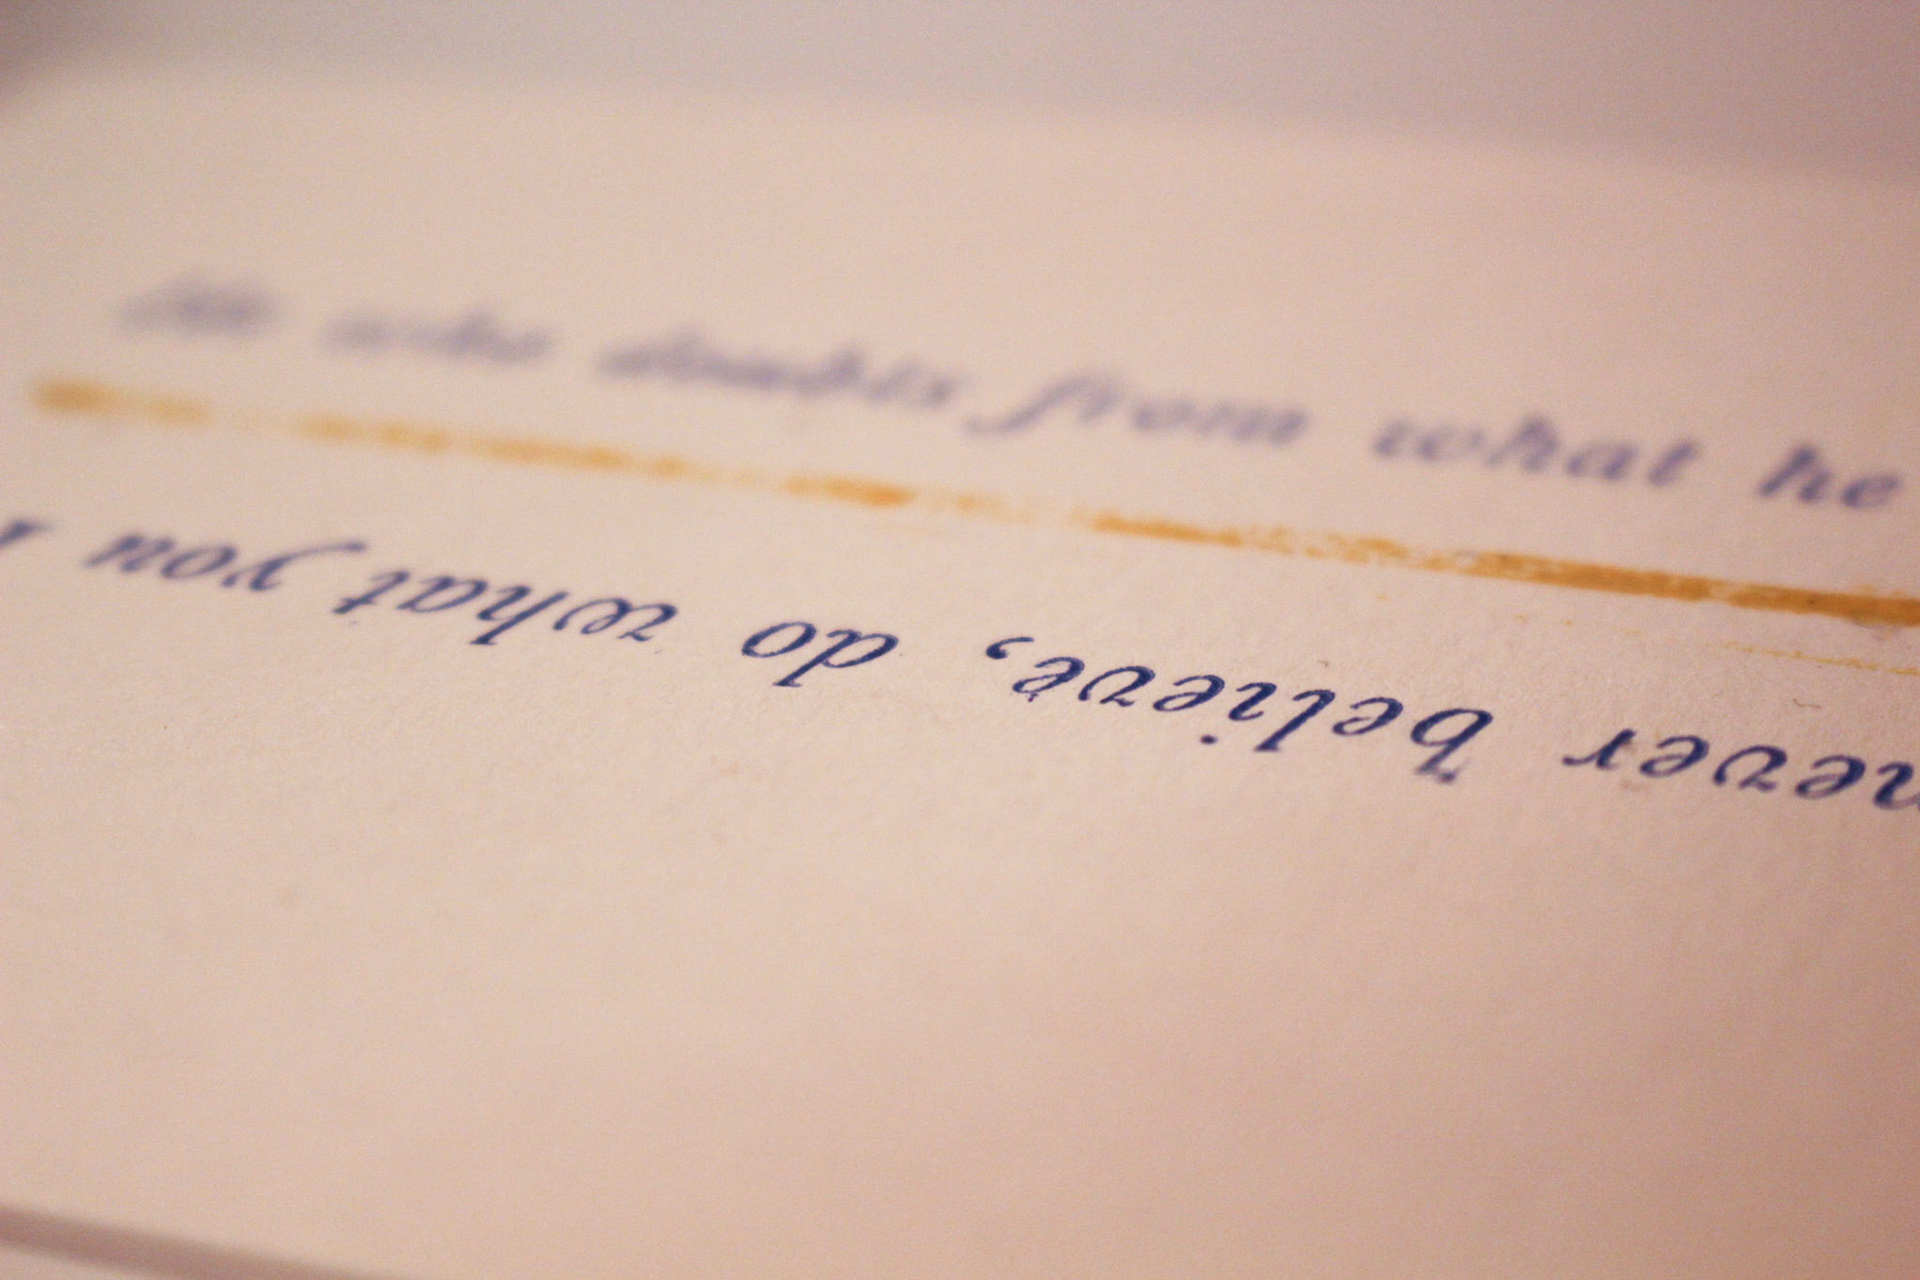 He who doubts from what he
never believe, do what you